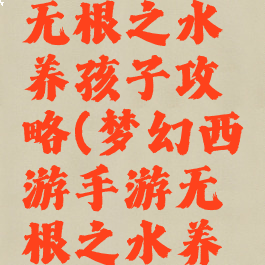 无根之水
养孩子攻
略(梦幻西
游手游无
根之水养